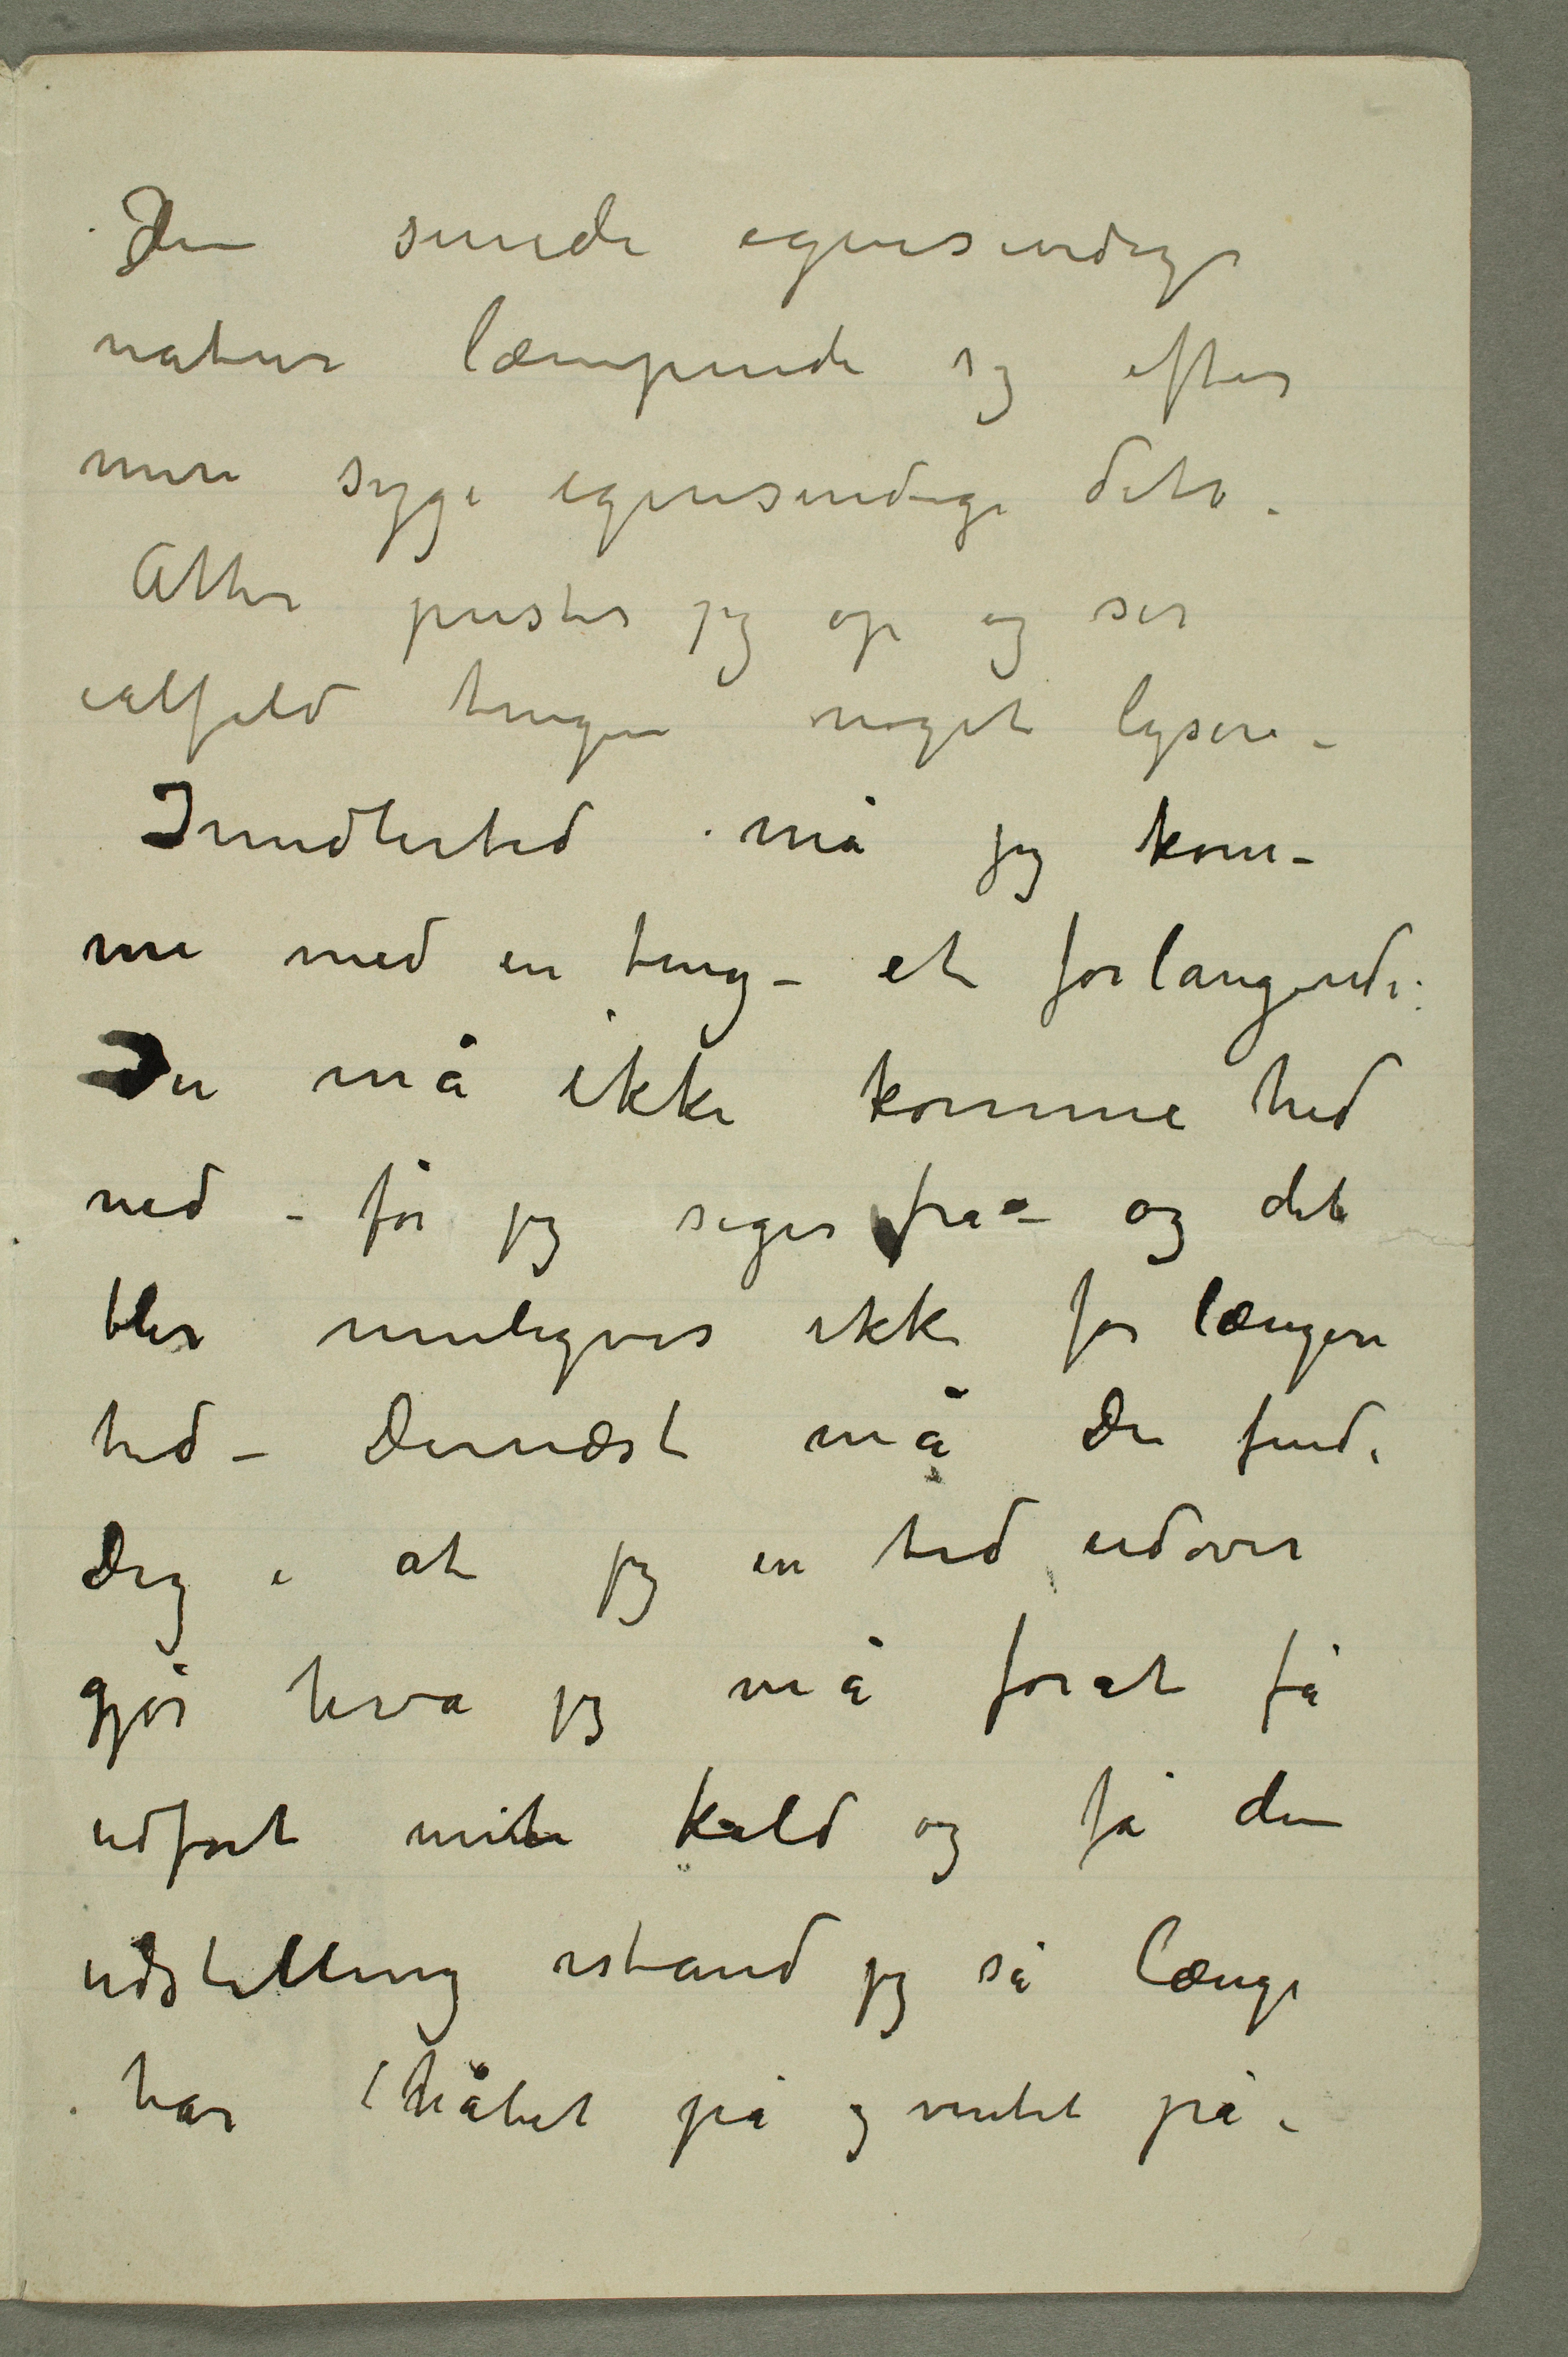 Din sunde egensindige
natur læmpende sig efter
min syge egensindige dito.
Atter puster jeg op og ser
ialfald tingen noget lysere –
Imidlertid må jeg kom-
me med en ting – et forlangende:
Du må ikke komme hid
ned – før jeg siger fra – og det
blir muligvis ikke før længere
tid – Dernæst må Du finde
Dig i at jeg en tid udover
gjør hva jeg må forat få
udført mit kald og få den
udstilling istand jeg så længe
har håbet på og ventet på.